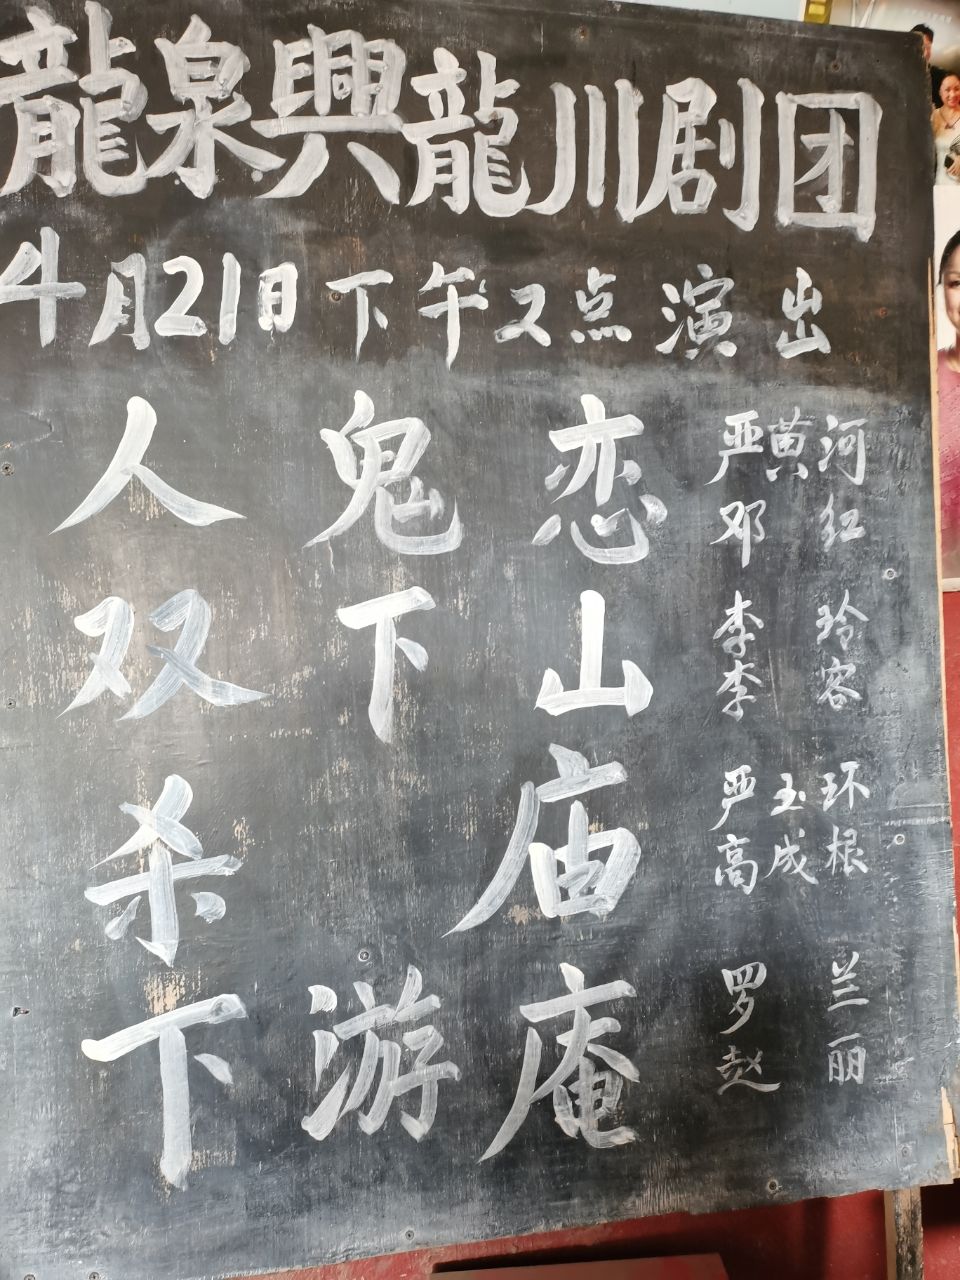 龍泉興龍川剧团
4月21日下午2点演出
人鬼恋 严黄河
邓红
双下山 李玲
李容
杀庙 严玉环
高成根
下游庵 罗兰
赵丽